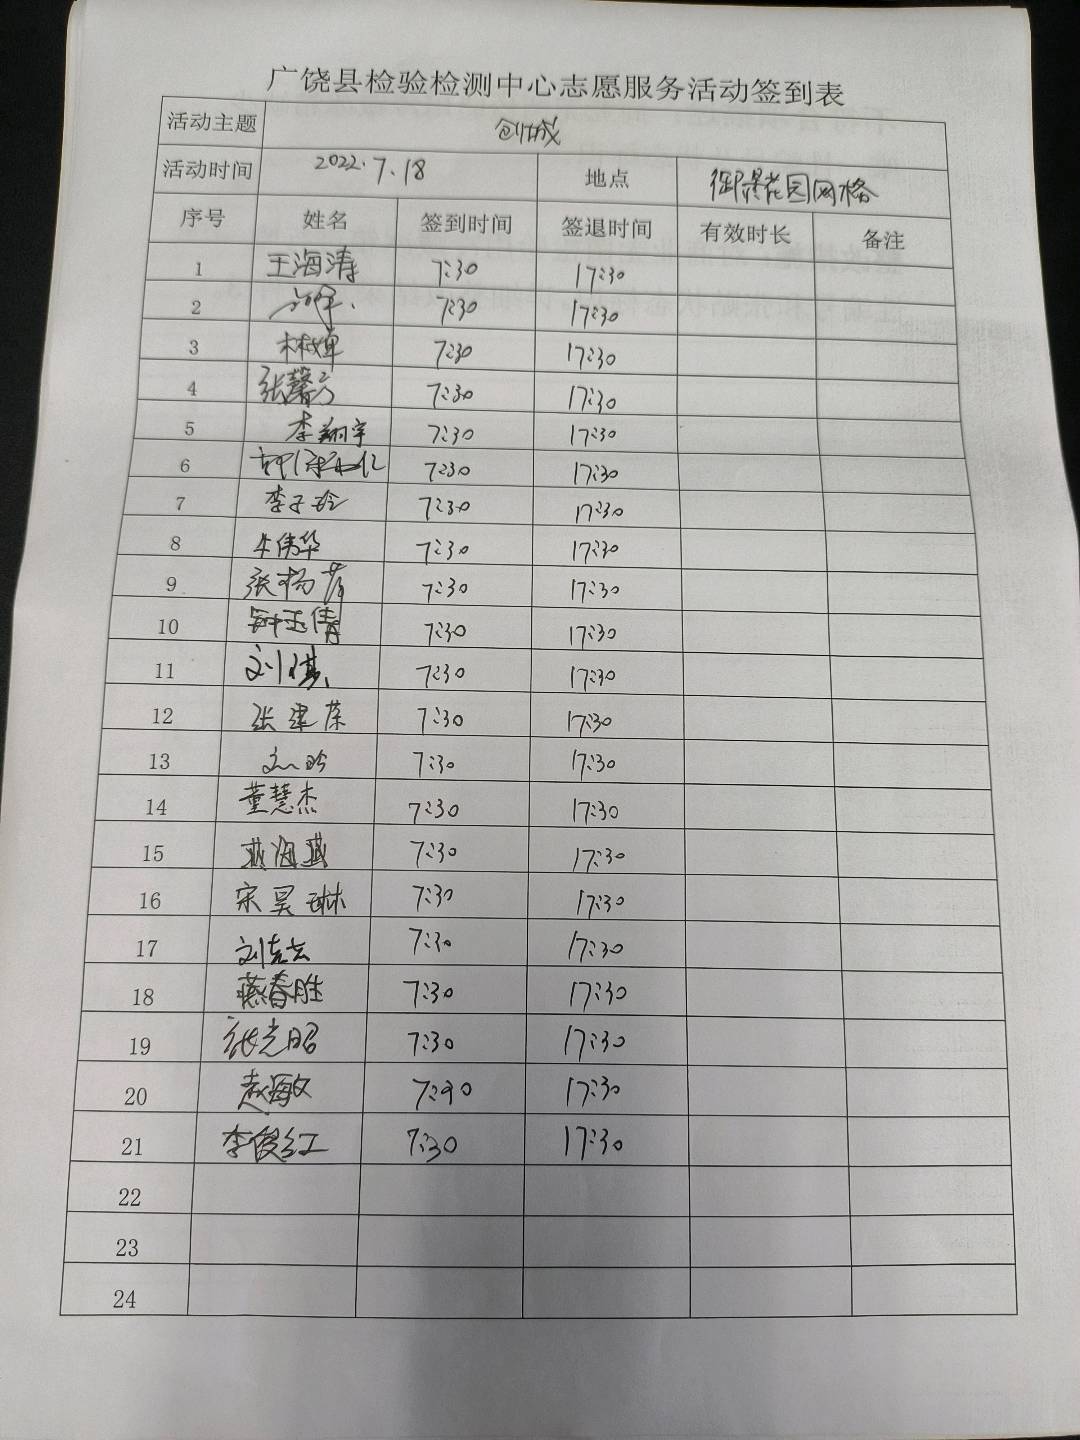 广饶县检验检测中心志愿服务活动签到表
活动主题 创城
活动时间 2022.7.18 地点 御景花园网格
序号 姓名 签到时间 签退时间 有效时长 备注
1 王海涛 7:30 17:30
2 7:30 17:30
3 7:30 17:30
4 张馨方 7:30 17:30
5 李翔宇 7:30 17:30
6 7:30 17:30
7 李子玲 7:30 17:30
8 牛伟华 7:30 17:30
9 张杨 7:30 17:30
10 钟玉倩 7:30 17:30
11 刘 7:30 17:30
12 张建荣 7:30 17:30
13 7:30 17:30
14 董慧杰 7:30 17:30
15 燕海燕 7:30 17:30
16 宋昊琳 7:30 17:30
17 刘 7:30 17:30
18 燕春胜 7:30 17:30
19 张光昭 7:30 17:30
20 赵海文 7:30 17:30
21 李俊红 7:30 17:30
22
23
24